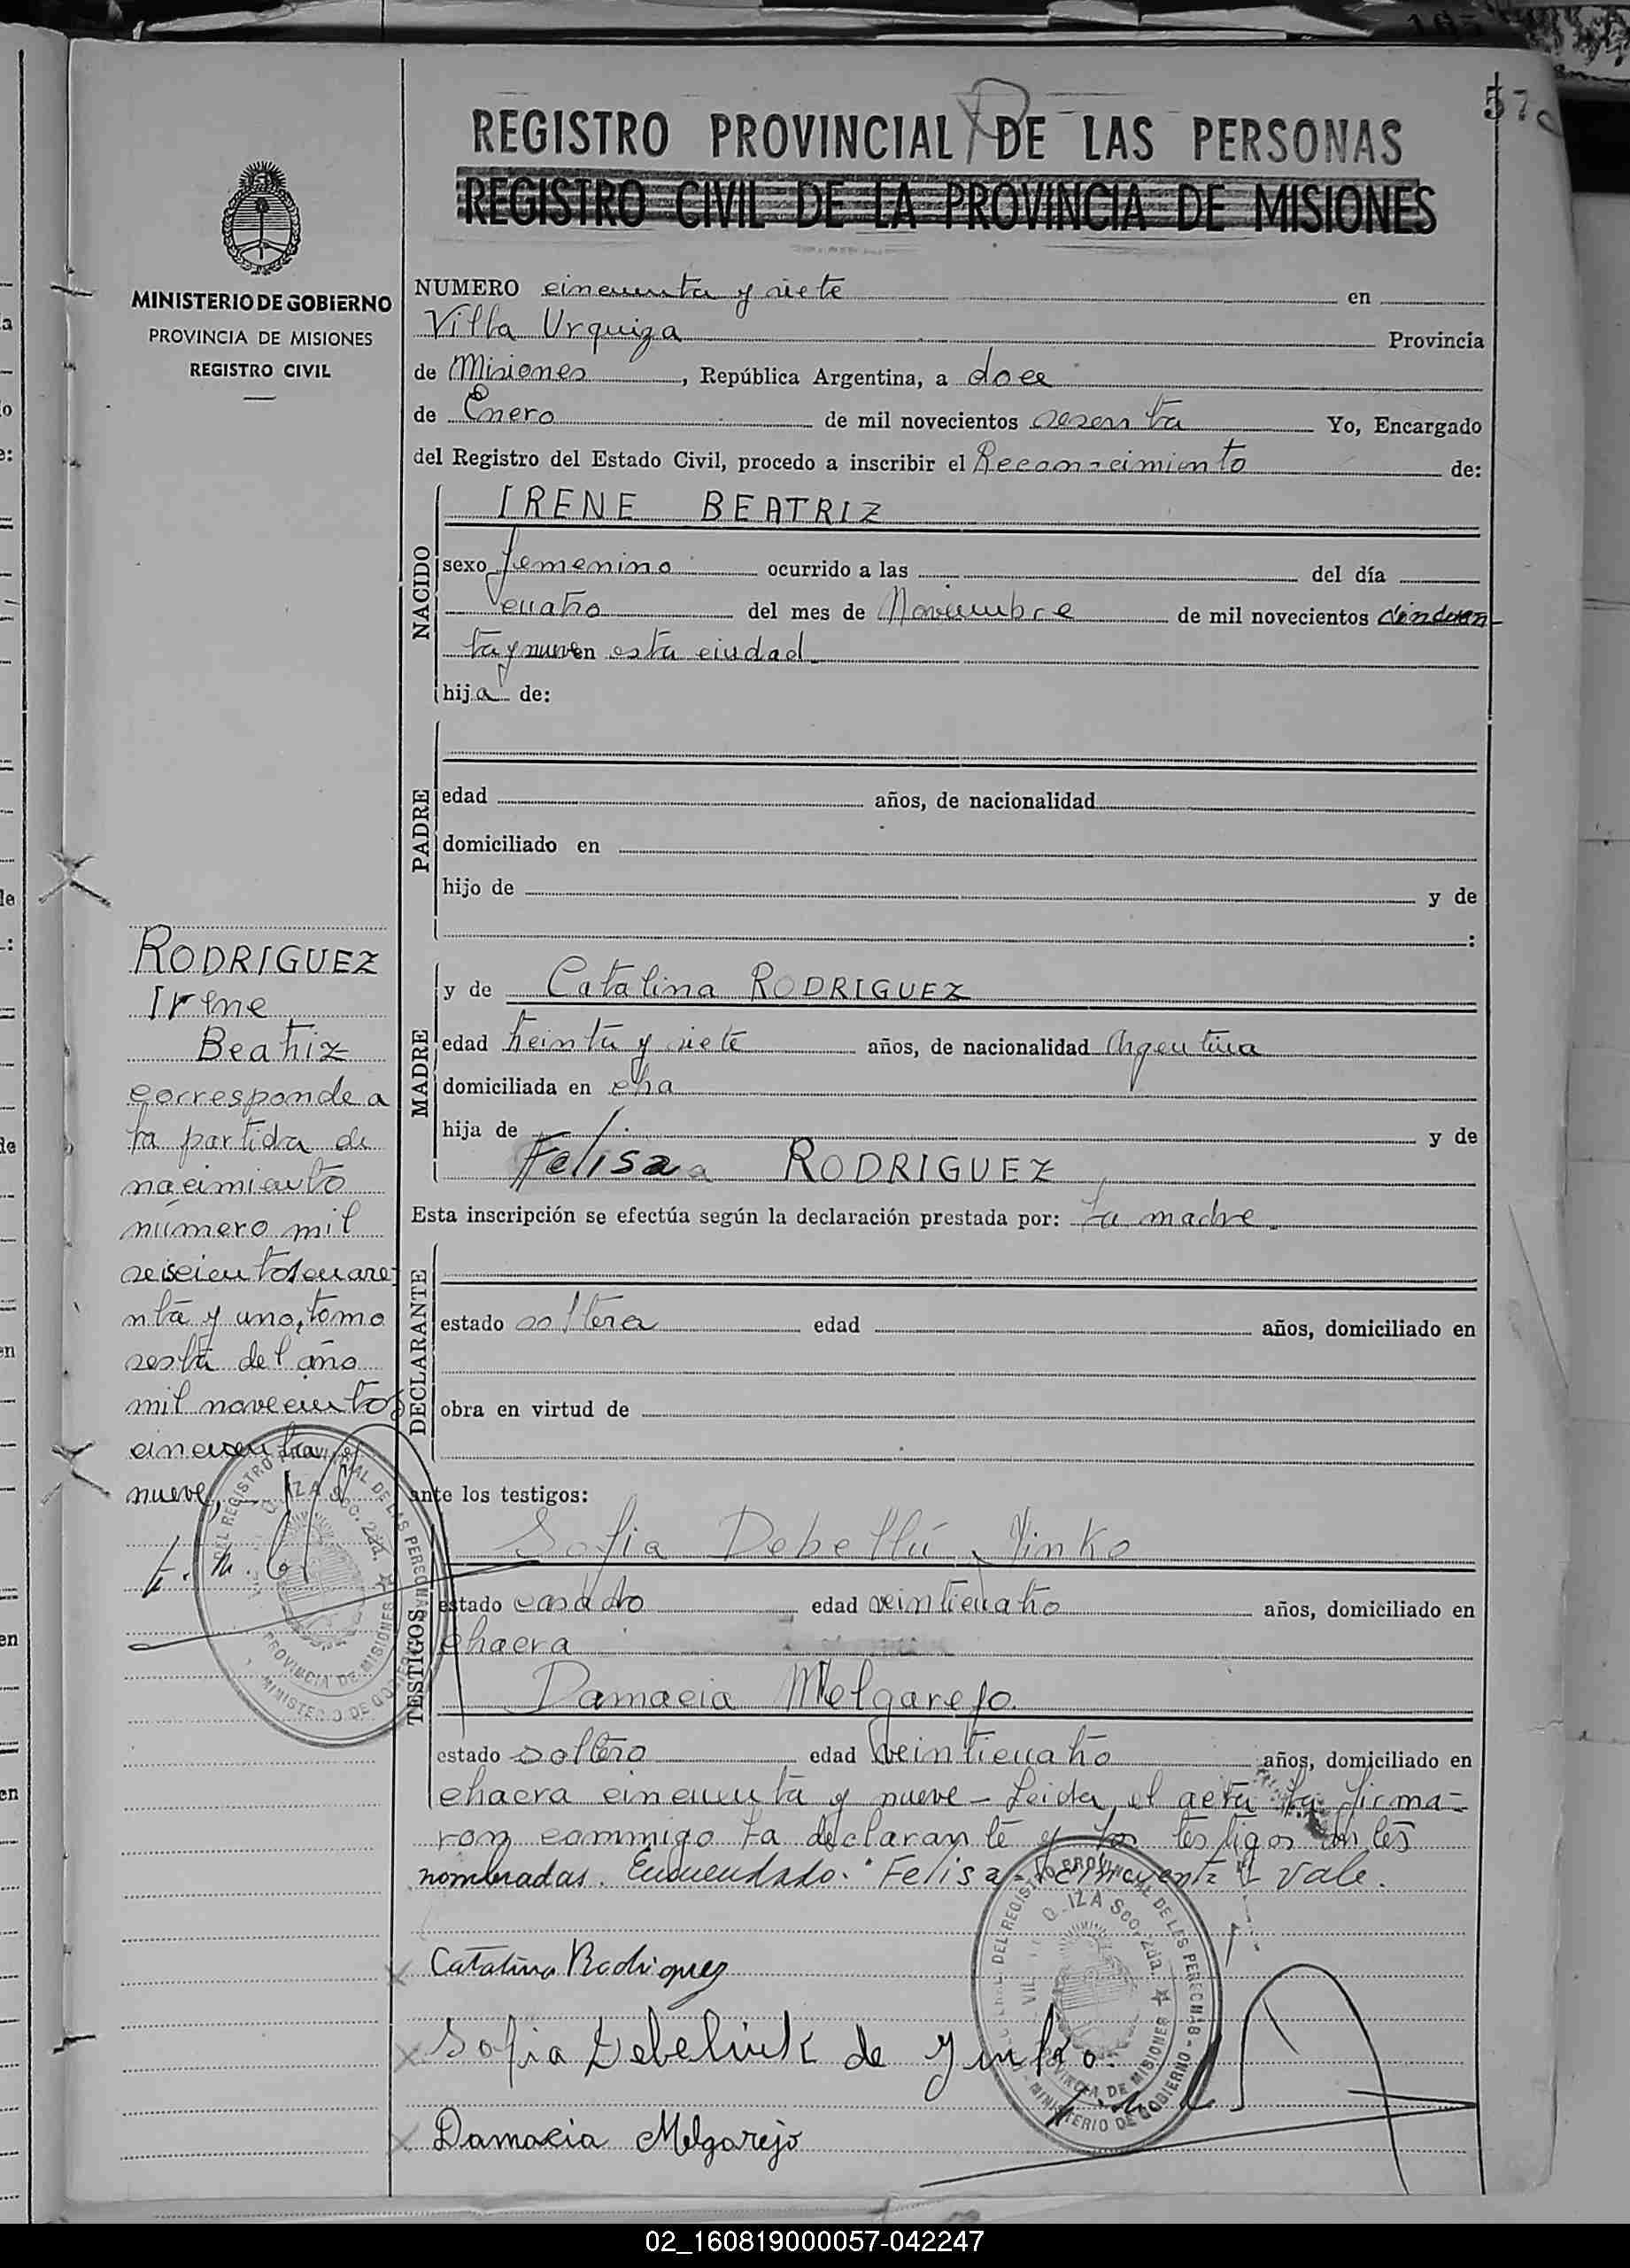 57
REGISTRO PROVINCIAL DE LAS PERSONAS
REGISTRO CIVIL DE LA PROVINCIA DE MISIONES
MINISTERIO DE GOBIERNO
PROVINCIA DE MISIONES
REGISTRO CIVIL
NUMERO cincuenta y siete en
Villa Urquiza Provincia
de Misiones, República Argentina, a doce
de Enero de mil novecientos sesenta Yo, Encargado
del Registro del Estado Civil, procedo a inscribir el Reconocimiento de:
NACIDO
IRENE BEATRIZ
sexo femenino ocurrido a las del día
cuatro del mes de Noviembre de mil novecientos cincuen
ta y nueve en esta ciudad
hija de:
PADRE
edad años, de nacionalidad
domiciliado en
hijo de y de
:
MADRE
y de Catalina RODRIGUEZ
edad treinta y siete años, de nacionalidad Argentina
domiciliada en
hija de y de
Felisa RODRIGUEZ
Esta inscripción se efectúa según la declaración prestada por: la madre.
DECLARANTE
estado soltera edad años, domiciliado en
obra en virtud de
ante los testigos:
TESTIGOS
Sofia Debelluk Yinko
estado casado edad veinticuatro años, domiciliado en
chacra
Damacia Melgarejo.
estado soltero edad veinticuatro años, domiciliado en
chacra cincuenta y nueve - Leida, el acta la firma-
ron conmigo la declarante y los testigos antes
nombradas. Enmendado: "Felisa - cincuenta" Vale.
Catalina Rodriguez
Sofia Debeluk de Yinko.
Damacia Melgarejo
RODRIGUEZ
Irene
Beatriz
corresponde a
la partida de
nacimiento
número mil
seiscientos cuare
nta y uno, tomo
sesta del año
mil novecientos
cincuenta y
nueve,
DEL REGISTRO PROVINCIAL DE LAS PERSONAS
MINISTERIO DE GOBIERNO
PROVINCIA DE MISIONES
02_160819000057-042247